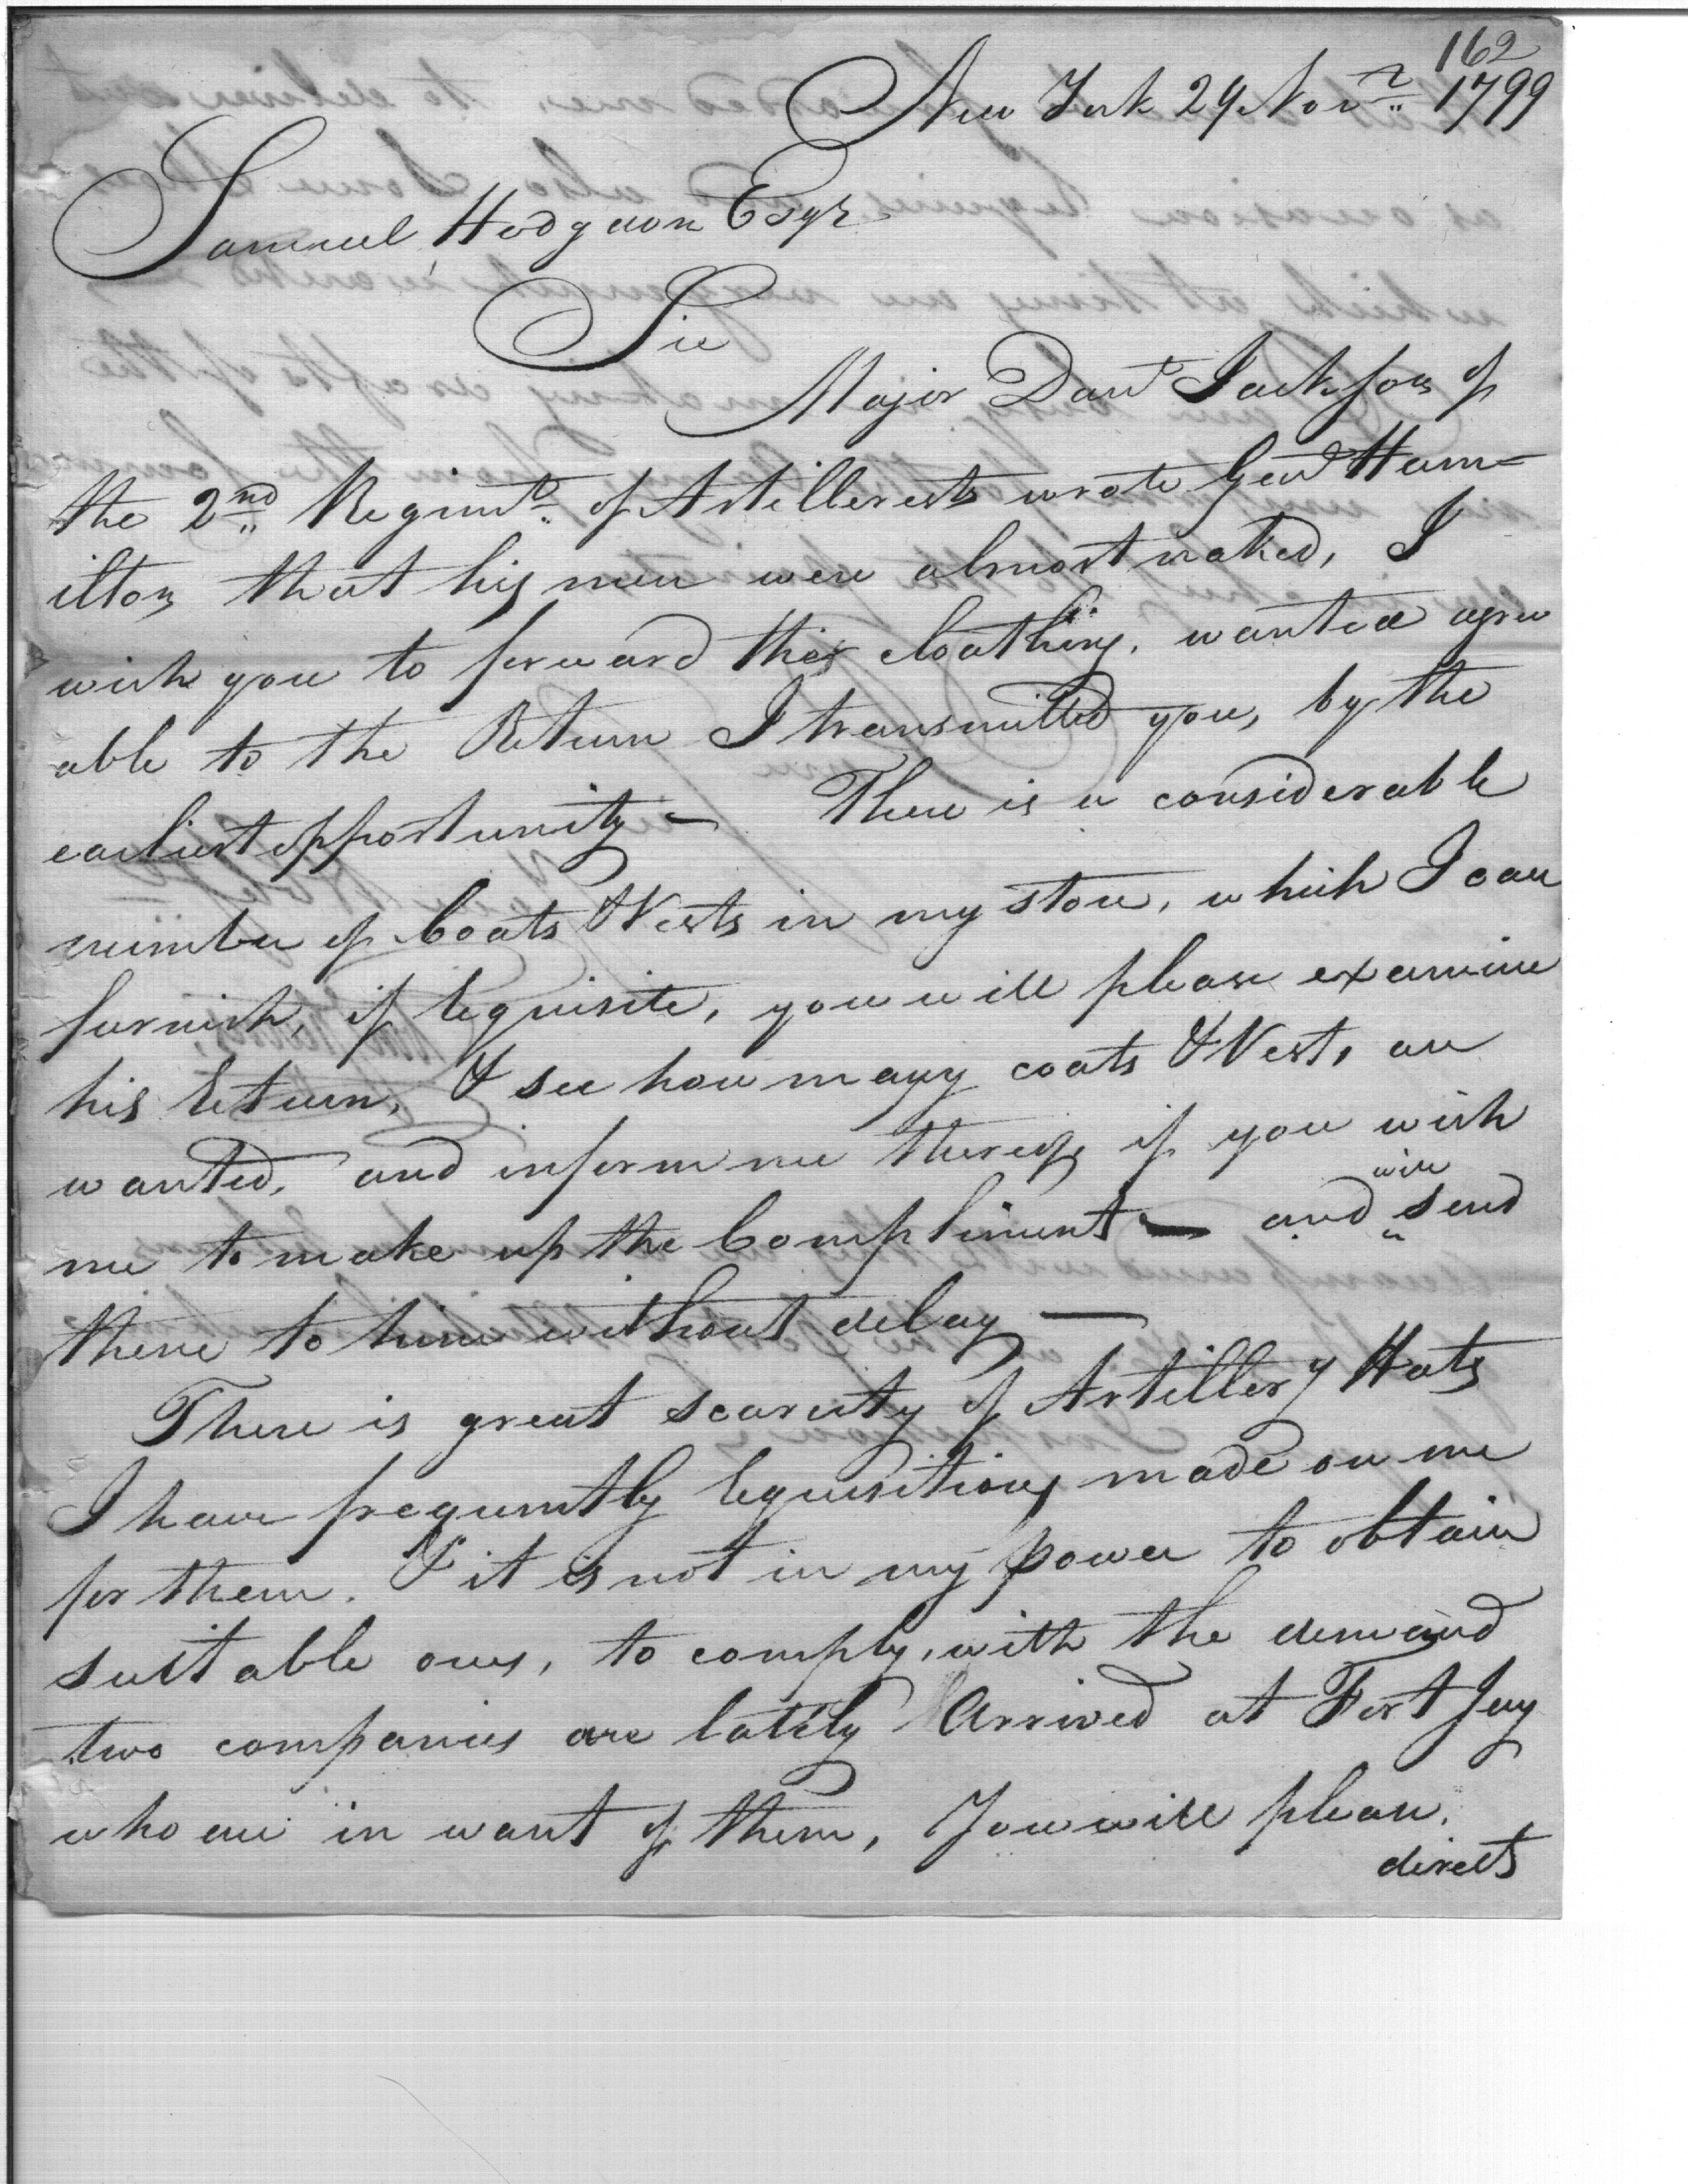 162
New York 29 Novr 1799
Samuel Hodgdon Esqr
Sir
Major Danl Jackson of
the 2nd Regimt of Artillerests wrote Genl Ham-
ilton that his men were almost naked, I
wish you to forward their cloathing, wanted agree
able to the Return I transmitted you, by the
earliest opportunity – There is a considerable
number of Coats & Vests in my store, which I can
furnish, if requisite, you will please examine
his return, & see how many coats & Vests, are
wanted, and inform me thereof, if you wish
me to make up the Compliment – and will send
them to him without delay —
There is great scarcity of Artillery Hats
I have frequently requisitions made on me
for them. & it is not in my power to obtain
suitable ones, to comply, with the demand
two companies are lately Arrived at Fort Jay
who are in want of them, You will please.
direct